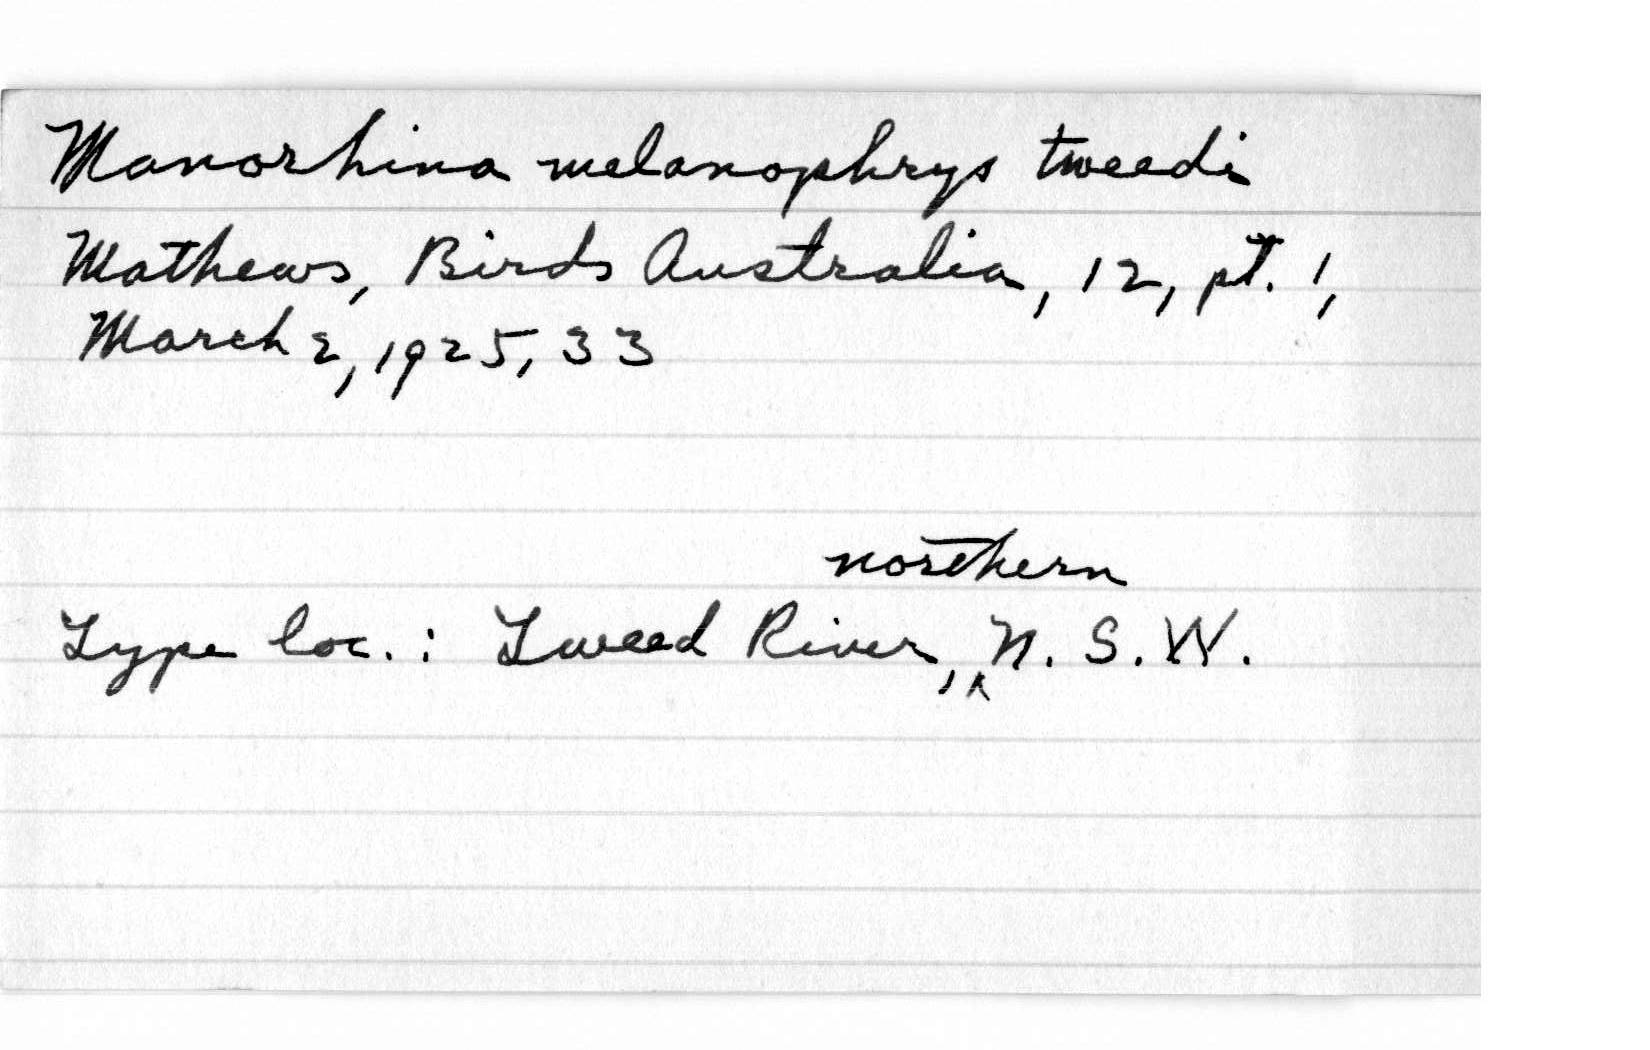 Manorhina melanophrys tweedi
Mathews, Birds Australia, 12, pt. 1,
March 2, 1925, 33
northern
Type loc. : Tweed River, ^ N. S. W.